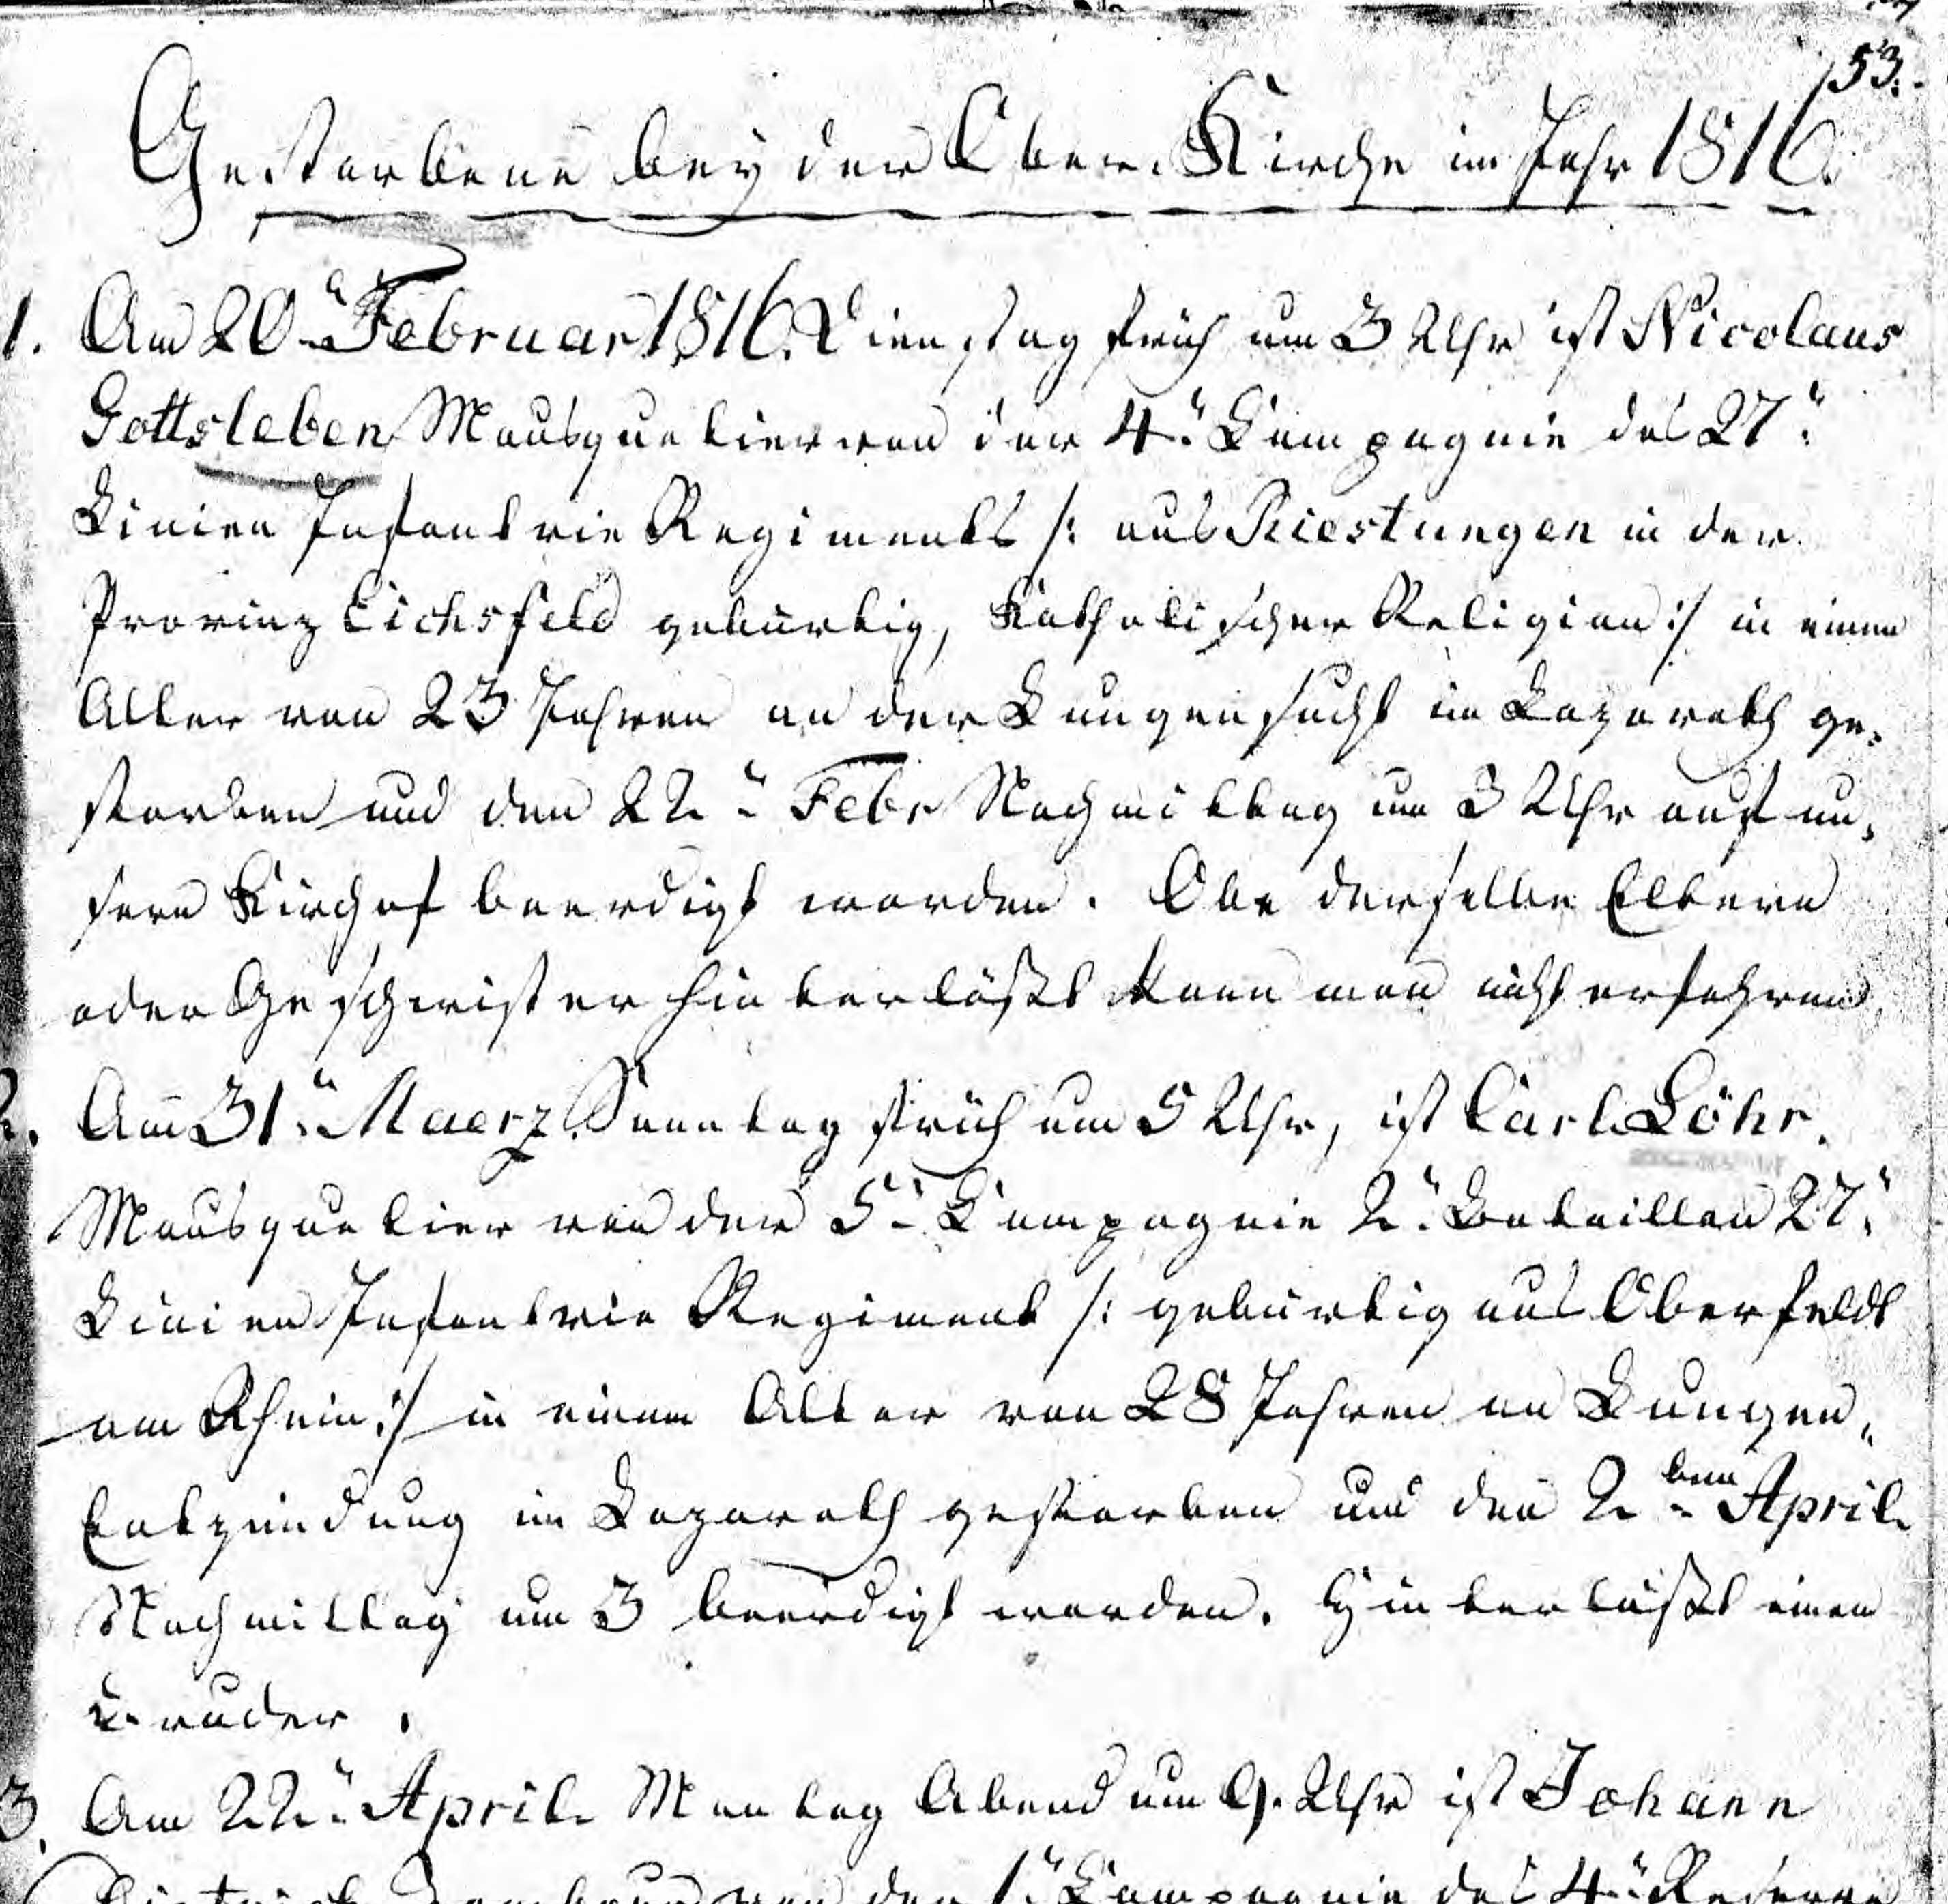 153.
Gestorbene bey der Ober Kirche im Jahr 1816.
1. Am 20n Februar 1816. Dienstag früh um 3 Uhr ist Nicolaus
Gottsleben Mousquetier von der 4n Compagnie des 27n
Linien Infantrie Regiments /: aus Riestungen in der
Provinz Eichsfeld gebürtig, Katholischer Religion :/ in einem
Alter von 23 Jahren an der Lungensucht im Lazareth ge-
storben und den 22n Febr Nachmittag um 3 Uhr auf un-
sern Kirchof beerdigt worden. Obe derselbe Eltern
oder Geschwister hinterläßt kann man nicht erfahren.
2. Am 31n Maerz Sonntag früh um 5 Uhr, ist Carl Löhr.
Mousquetier von der 5n Compagnie 2n Bataillon 27n
Linien Infantrie Regiment /: gebürtig aus Oberfeldt
am Rhein :/ in einem Alter von 28 Jahren an Lungen-
Entzündung im Lazareth gestorben und den 2ten April
Nachmittag um 3 beerdigt worden. Hinterläßt einen
Bruder.
3. Am 22n April Montag Abend um 9. Uhr ist Johann
von der 1n Compagnie des 4n Reserve